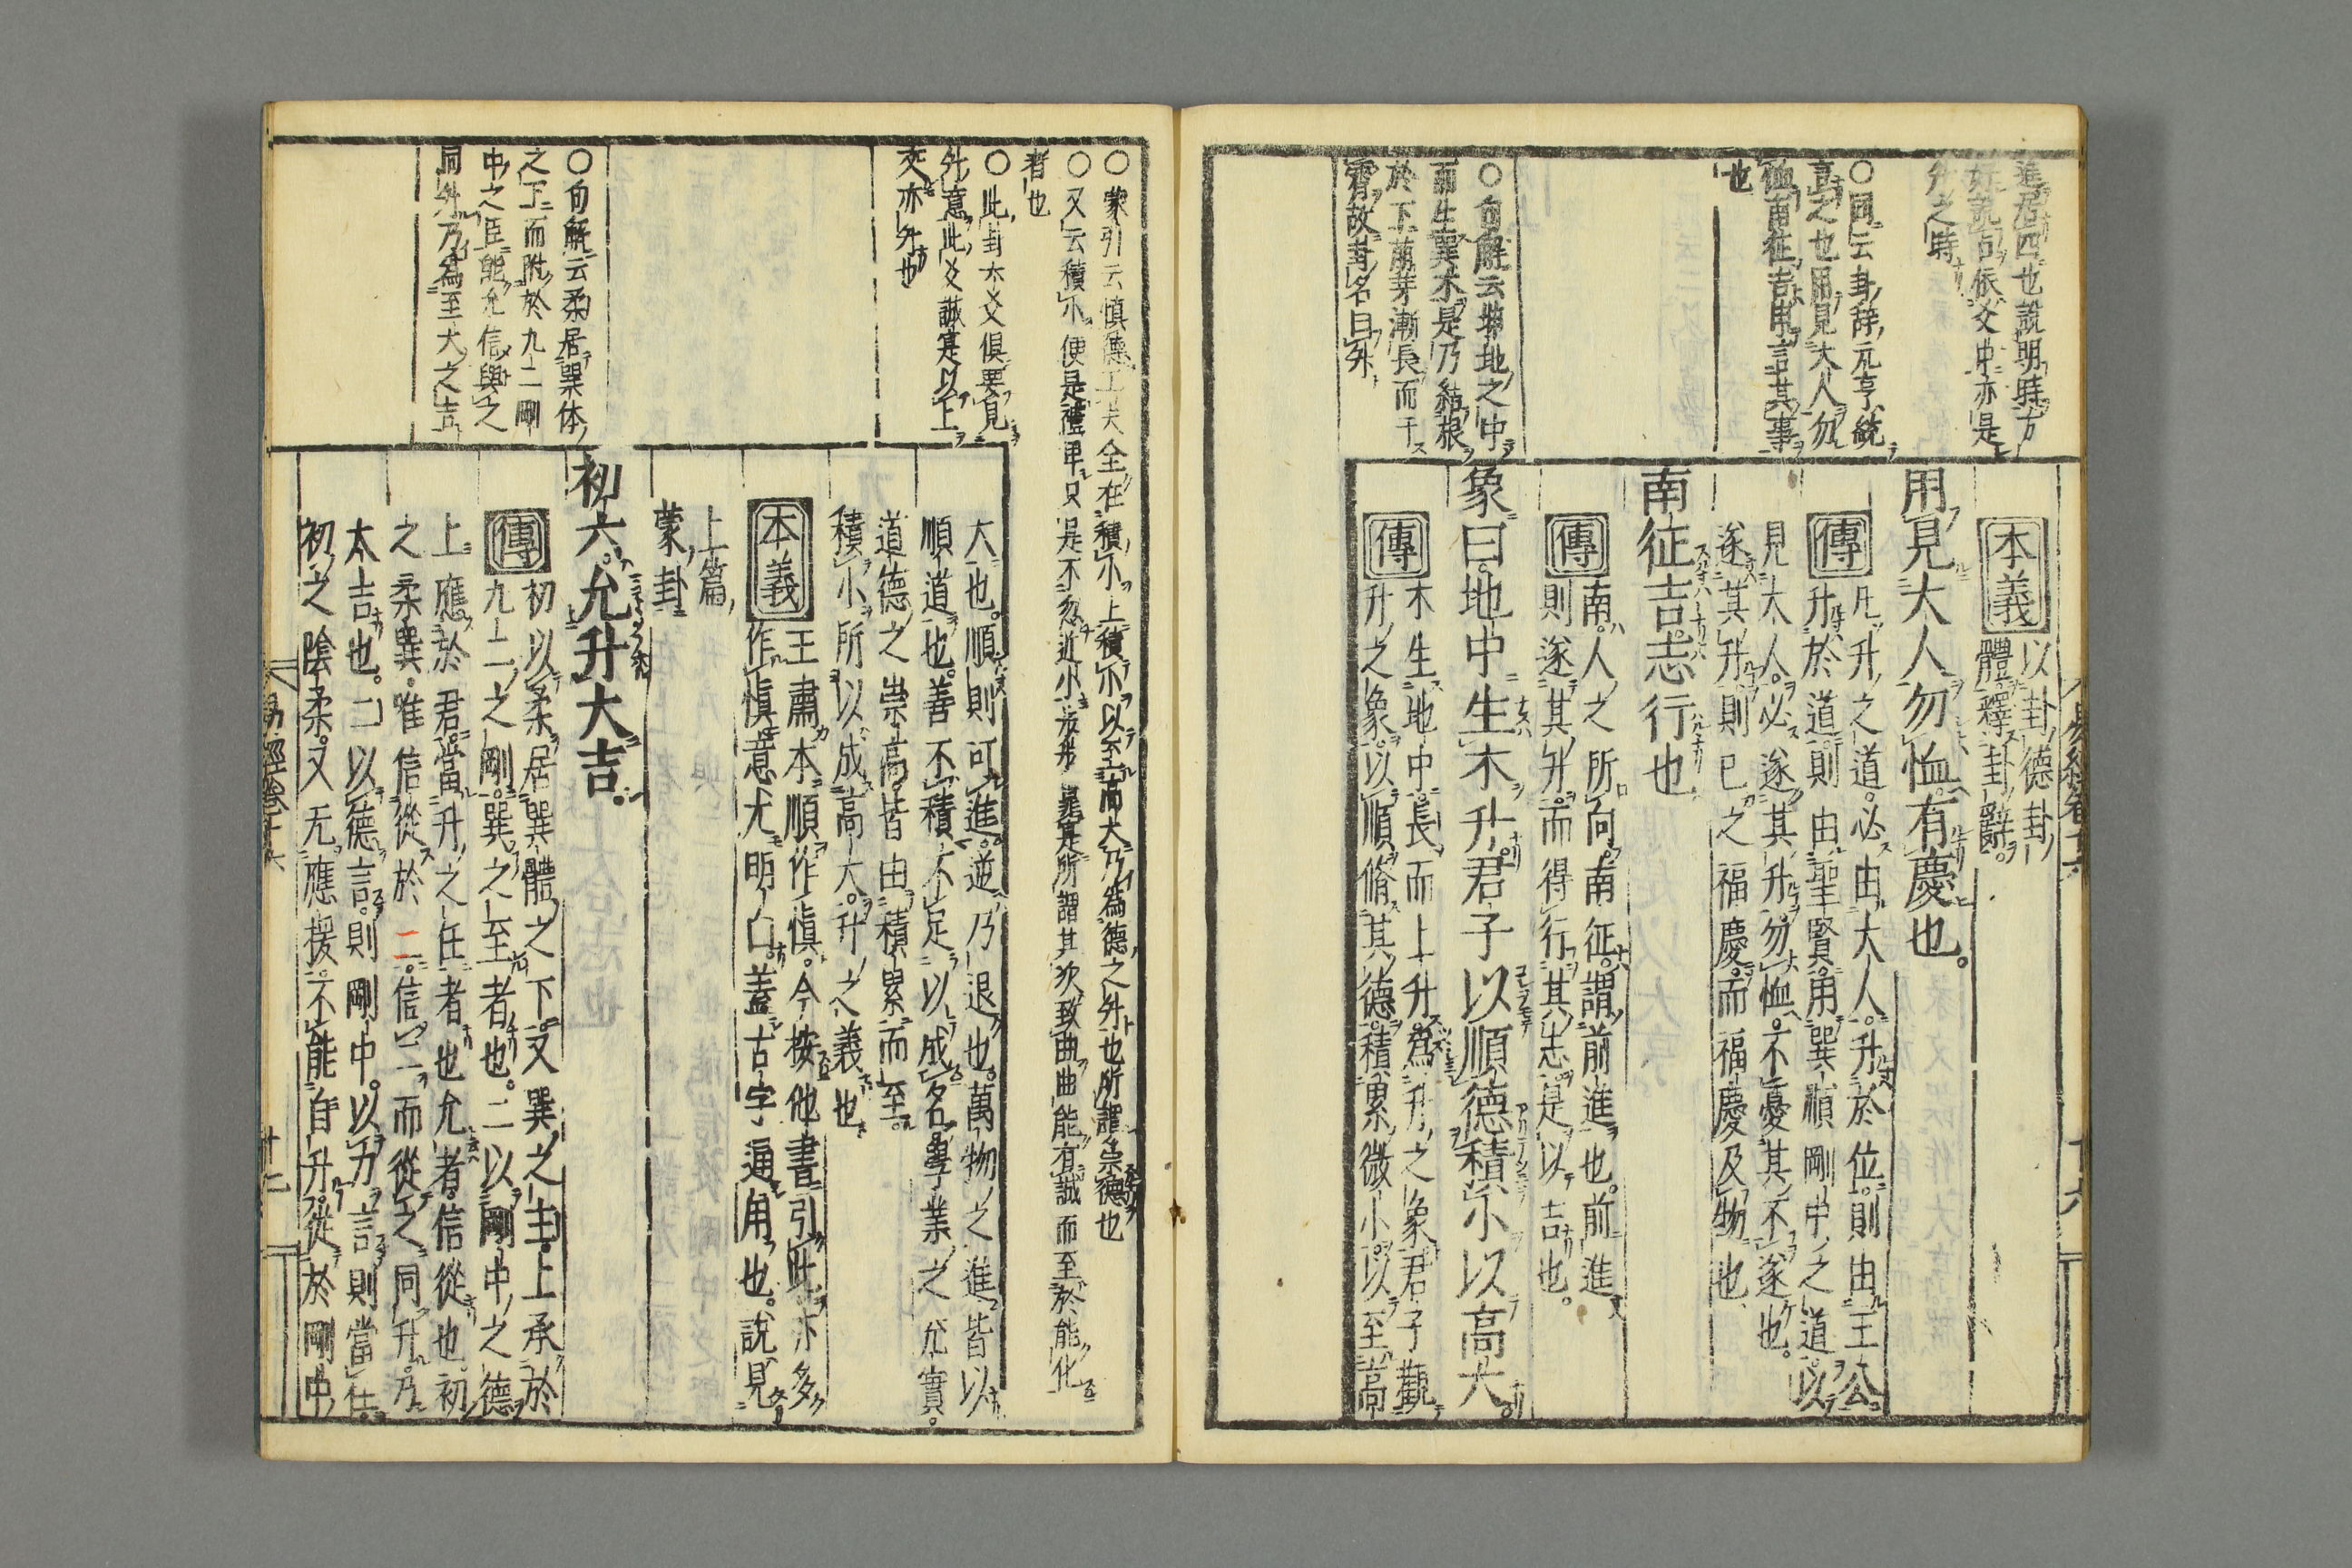 進居四也說明時方
好說句依爻中亦是
升之時
○同云卦辭元亨統
言之也用見大人勿
恤南征吉申言其事
也
○句解云坤地之中
而生巽木是乃結根
於下萌芽漸長而干
霄故卦名曰升
本義
以卦德卦
體釋卦辭
用見大人勿恤有慶也
傳
凡升之道必由大人升於位則由王公
升於道則由聖賢用巽順剛中之道以
見大人必遂其升勿恤不憂其不遂也
遂其升則已之福慶而福慶及物也
南征吉志行也
傳
南人之所向南征謂前進也前進
則遂其升而得行其志是以吉也
象曰地中生木升君子以順德積小以高大
傳
木生地中長而上升爲升之象君子觀
升之象以順脩其德積累微小以至高
○蒙引云慎德工夫全在積小上積小以至高大乃為德之升也所謂崇德也
○又云積小便是禮卑只是不忽近小
者也
○此卦六爻俱要見
升意此爻誠寔以上
交亦升也
大也順則可進逆乃退也萬物之進皆以
順道也善不積不足以成名學業之充實
道德之崇高皆由積累而至
積小所以成高大升之義也
本義
王肅本順作慎今按他書引此亦多
作慎意尤明白蓋古字通用也說見
上篇
蒙卦
初六允升大吉
○句解云柔居巽体
之下而附於九二剛
中之臣能允信與之
同升乃為至大之吉
傳
初以柔居巽體之下又巽之主上承於
九二之剛巽之至者也二以剛中之德
上應於君當升之任者也允者信從也初
之柔巽唯信從於二信二而從之同升乃
大吉也二以德言則剛中以力言則當任
初之陰柔又无應援不能自升從於剛中
易經卷十六
廿二